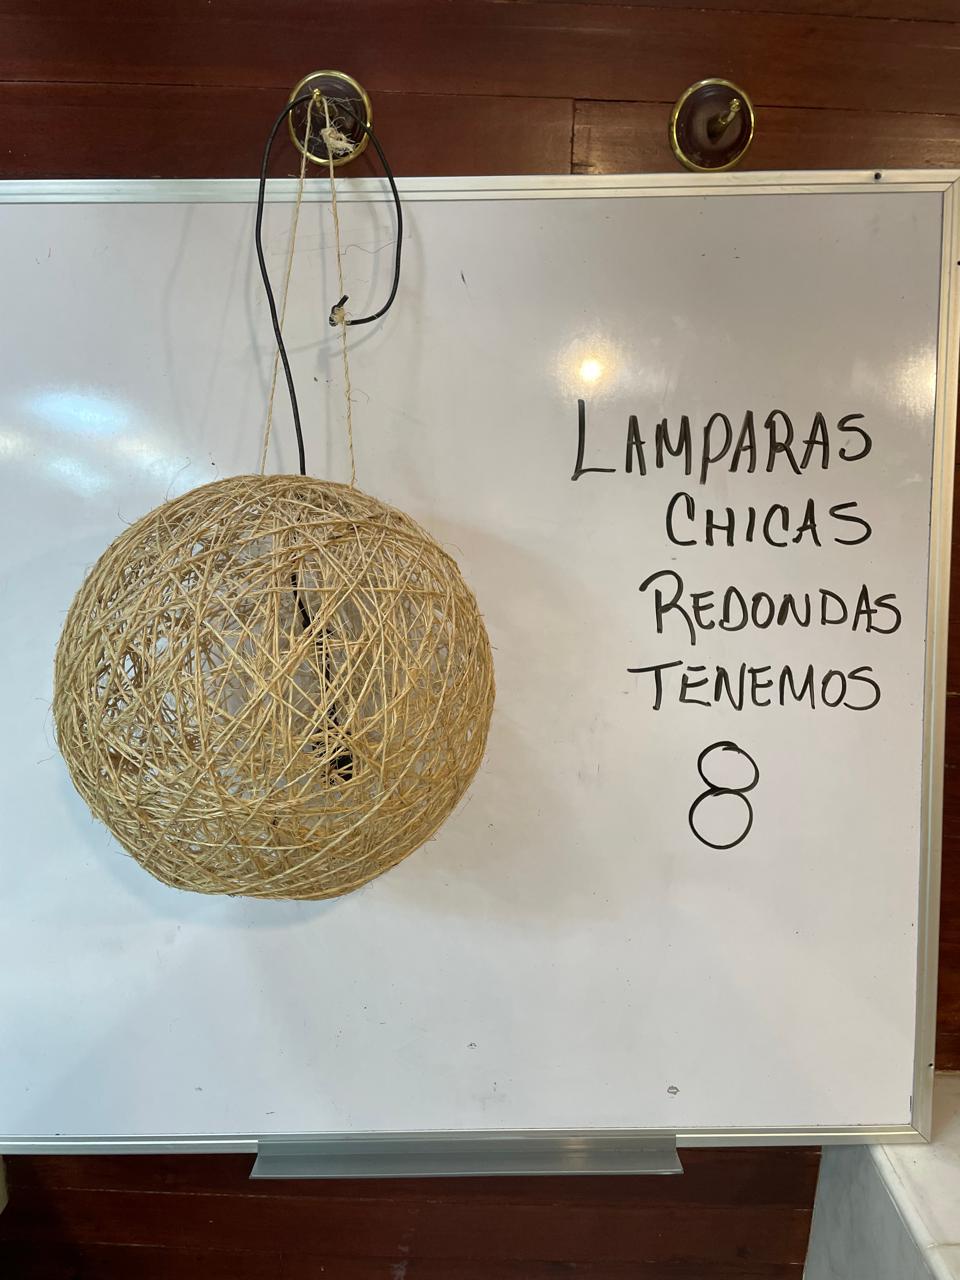 LAMPARAS
CHICAS
REDONDAS
TENEMOS
8